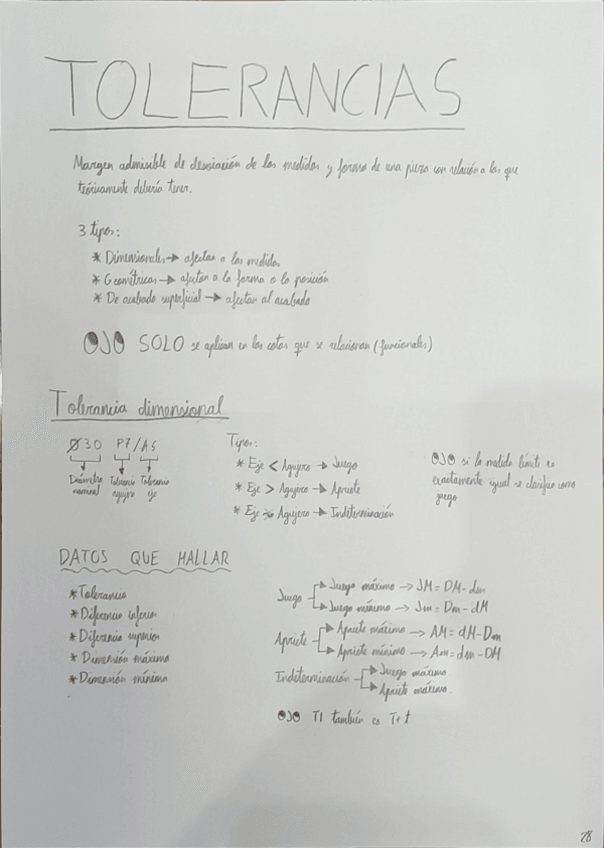 TOLERANCIAS
Margen admisible de desviación de las medidas y forma de una pieza con relación a las que
teóricamente debería tener.
3 tipos:
* Dimensionales → afectan a las medidas
* Geométricas → afectan a la forma o la posición
* De acabado superficial → afectan al acabado
OJO SOLO se aplican en las cotas que se relacionan (funcionales)
Tolerancia dimensional
Ø30 P7/A5
Diámetro nominal
Tolerancia agujero
Tolerancia eje
Tipos:
* Eje < Agujero → Juego
* Eje > Agujero → Apriete
* Eje Agujero → Indeterminación
OJO si la medida límite es
exactamente igual se clasifica como
juego
DATOS QUE HALLAR
* Tolerancia
* Diferencia inferior
* Diferencia superior
* Dimensión máxima
* Dimensión mínima
Juego → Juego máximo → JM = DM - dm
→ Juego mínimo → Jm = Dm - dM
Apriete → Apriete máximo → AM = dM - Dm
→ Apriete mínimo → Am = dm - DM
Indeterminación → Juego máximo
→ Apriete máximo.
OJO TI también es T+t
28